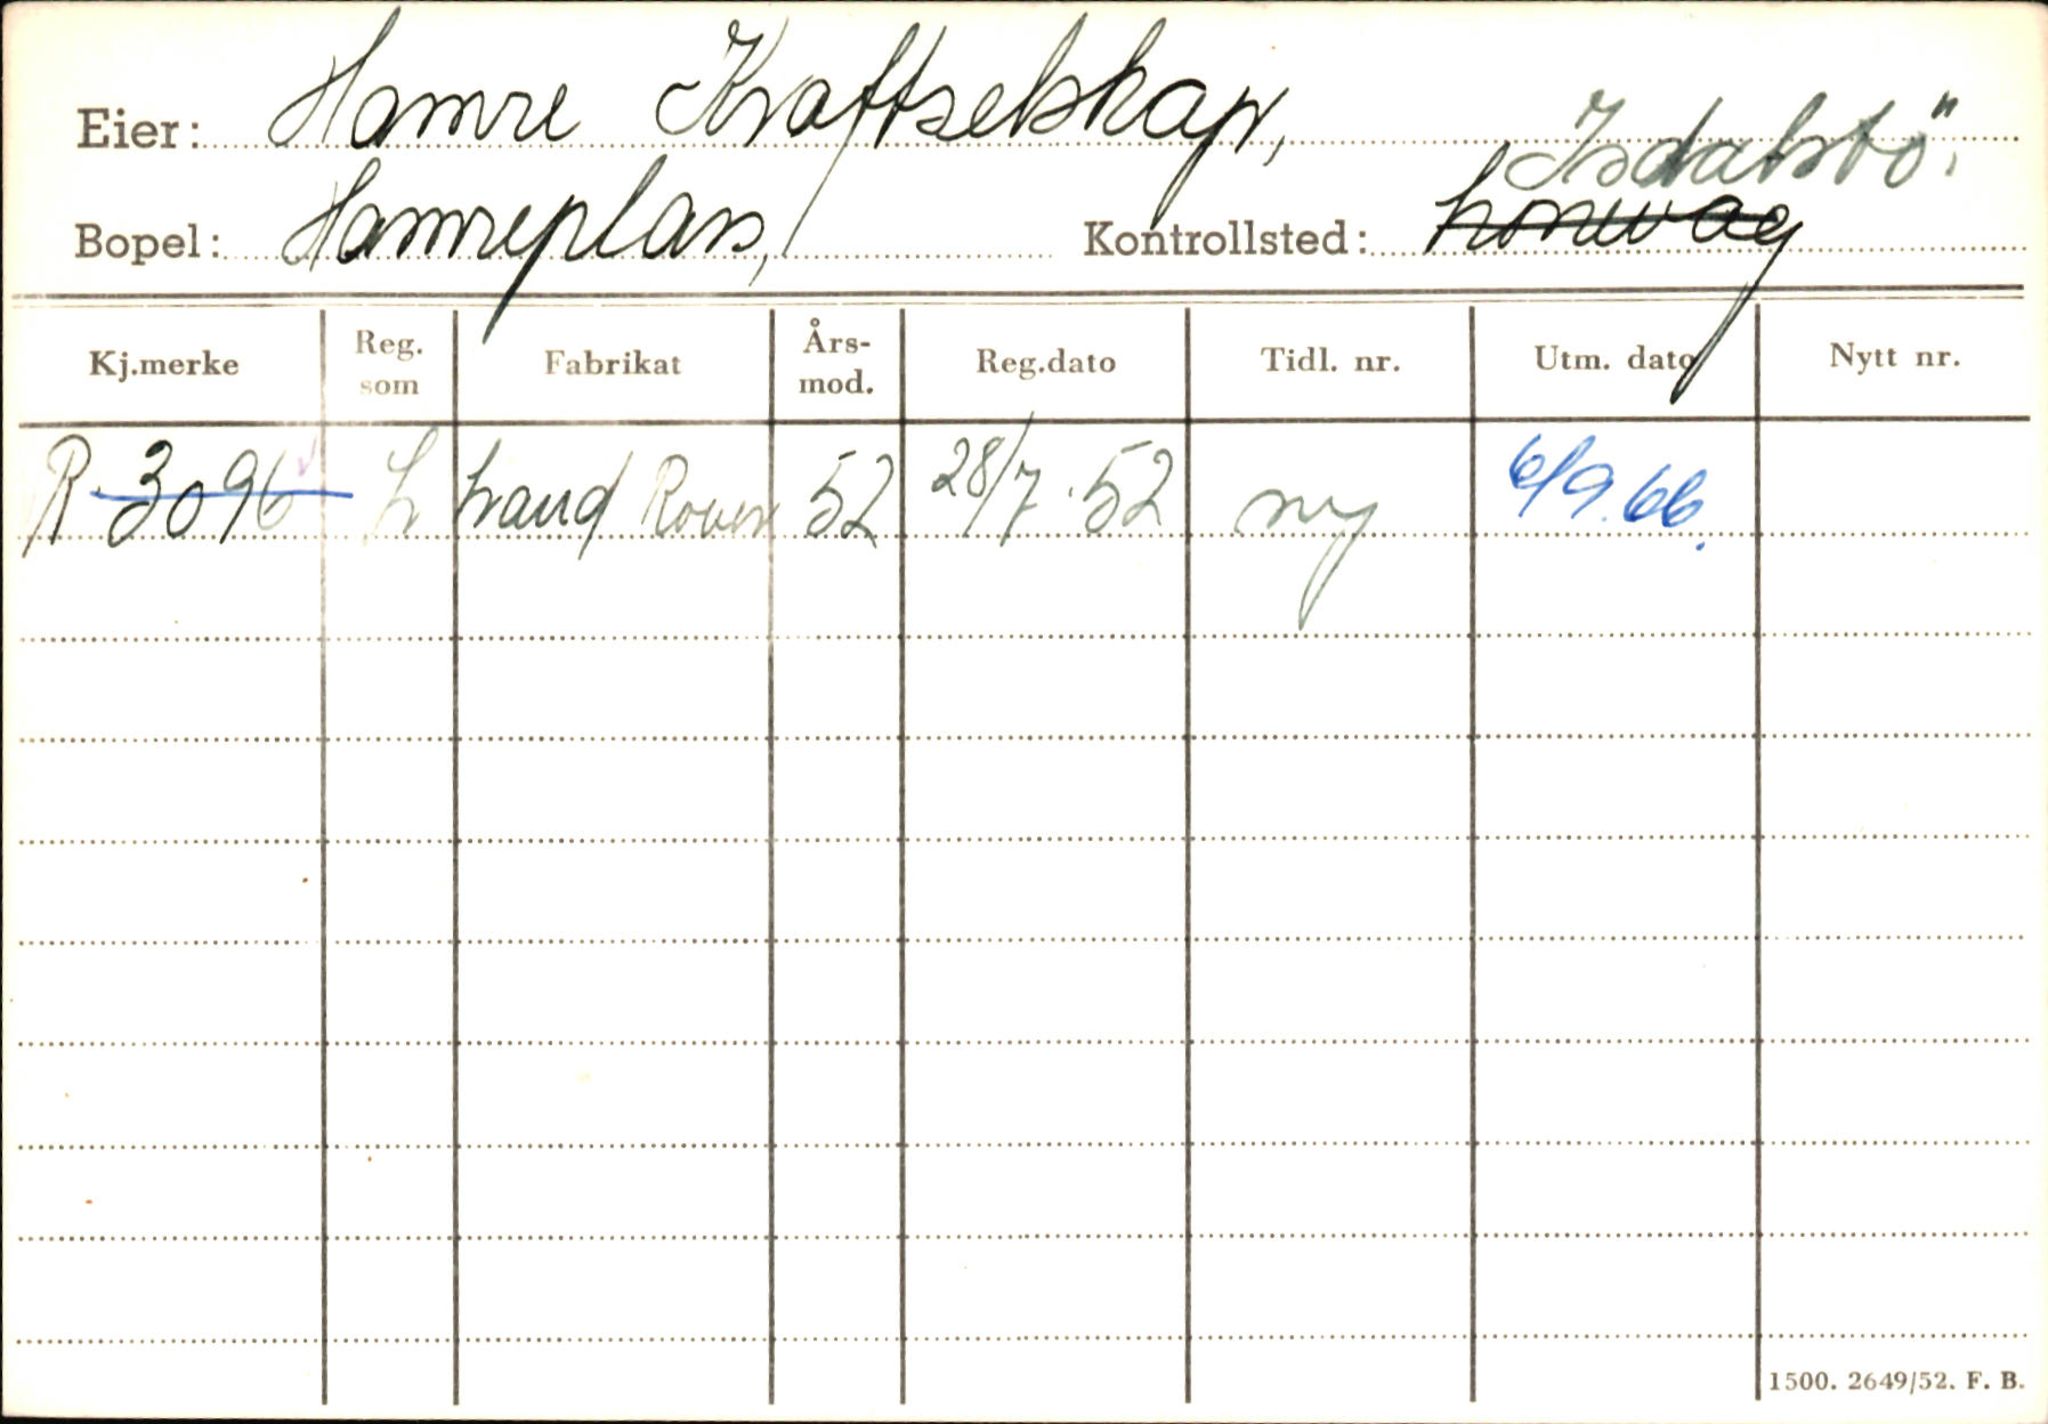 Eier: Hamre Kraftselskap,
Isdalstö.
Bopel: Hamreplass, Kontrollsted: Lonevåg
Kj.merke Reg. som Fabrikat Års-mod. Reg.dato Tidl. nr. Utm. dato Nytt nr.
R-3096 L Land Rover 52 28/7-52 ny 6/9.66.
1500. 2649/52. F. B.